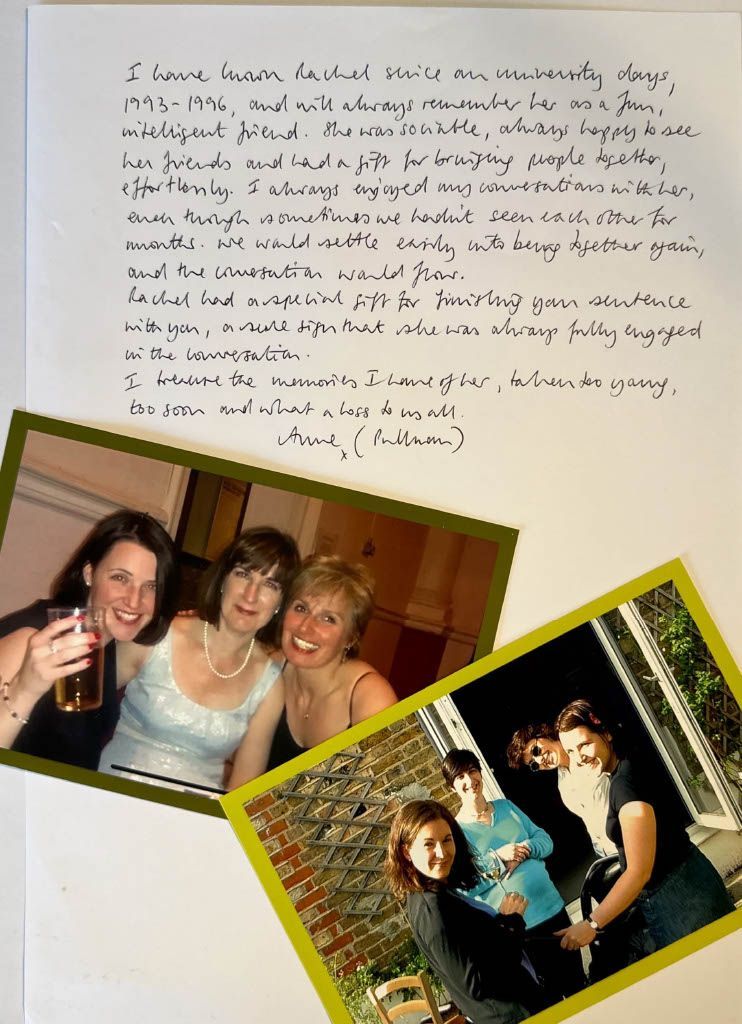 I have known Rachel since our university days,
1993-1996, and will always remember her as a fun,
intelligent friend. She was sociable, always happy to see
her friends and had a gift for bringing people together,
effortlessly. I always enjoyed my conversations with her,
even though sometimes we hadn't seen each other for
months. We would settle easily into being together again,
and the conversation would flow.
Rachel had a special gift for finishing your sentence
with you, a sure sign that she was always fully engaged
in the conversation.
I treasure the memories I have of her, taken too young,
too soon and what a loss to us all.
Anne x (Pullman)